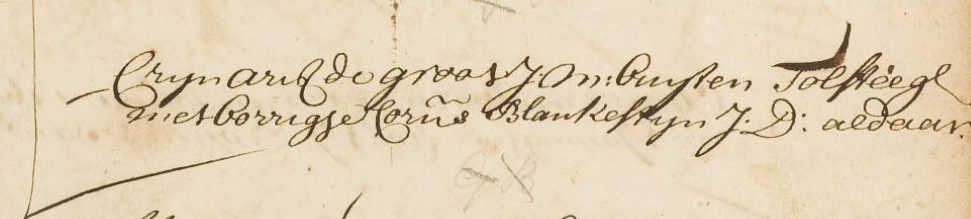 Cryn aris de groot J: M: buyten Tolsteegh
met borrigje Corns Blankestyn J: D: aldaar.